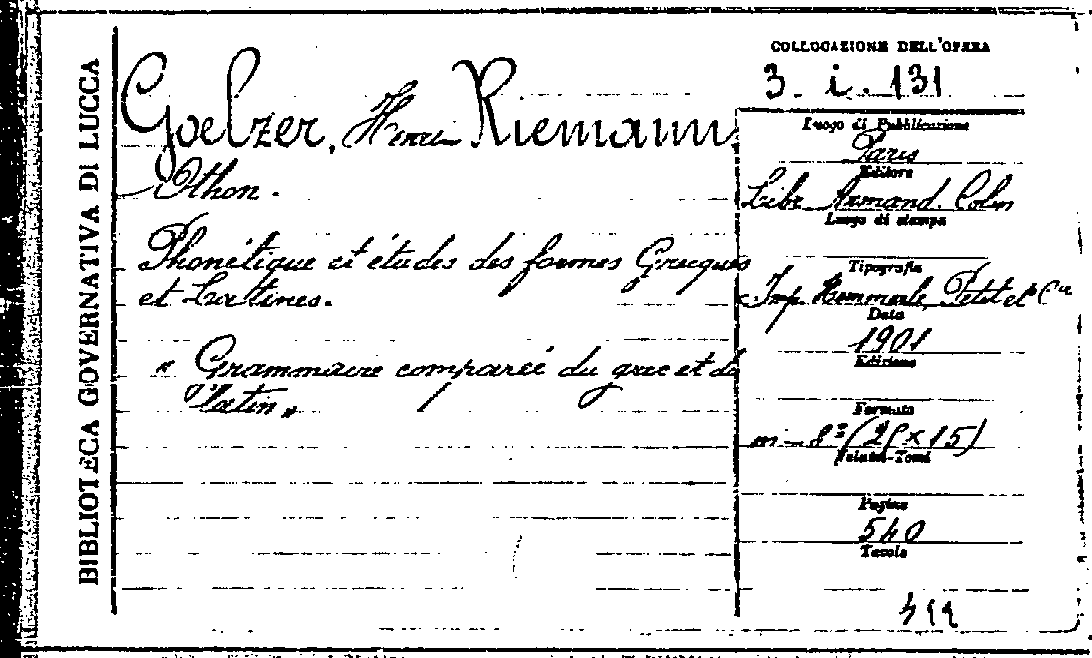 BIBLIOTECA GOVERNATIVA DI LUCCA
Goelzer, Henri Riemann,
Othon.
Phonétique et études des formes Grecques
et Latines.
« Grammaire comparée du grec et du
latin »
COLLOCAZIONE DELL'OPERA
3. i. 131
Luogo di Pubblicazione
Paris
Editore
Libr. Armand. Colin
Luogo di stampa
Tipografia
Imp. Hemmerlé, Petit et Cie
Data
1901
Edizione
Formato
in-8° (25×15)
Volumi-Tomi
Pagine
540
Tavole